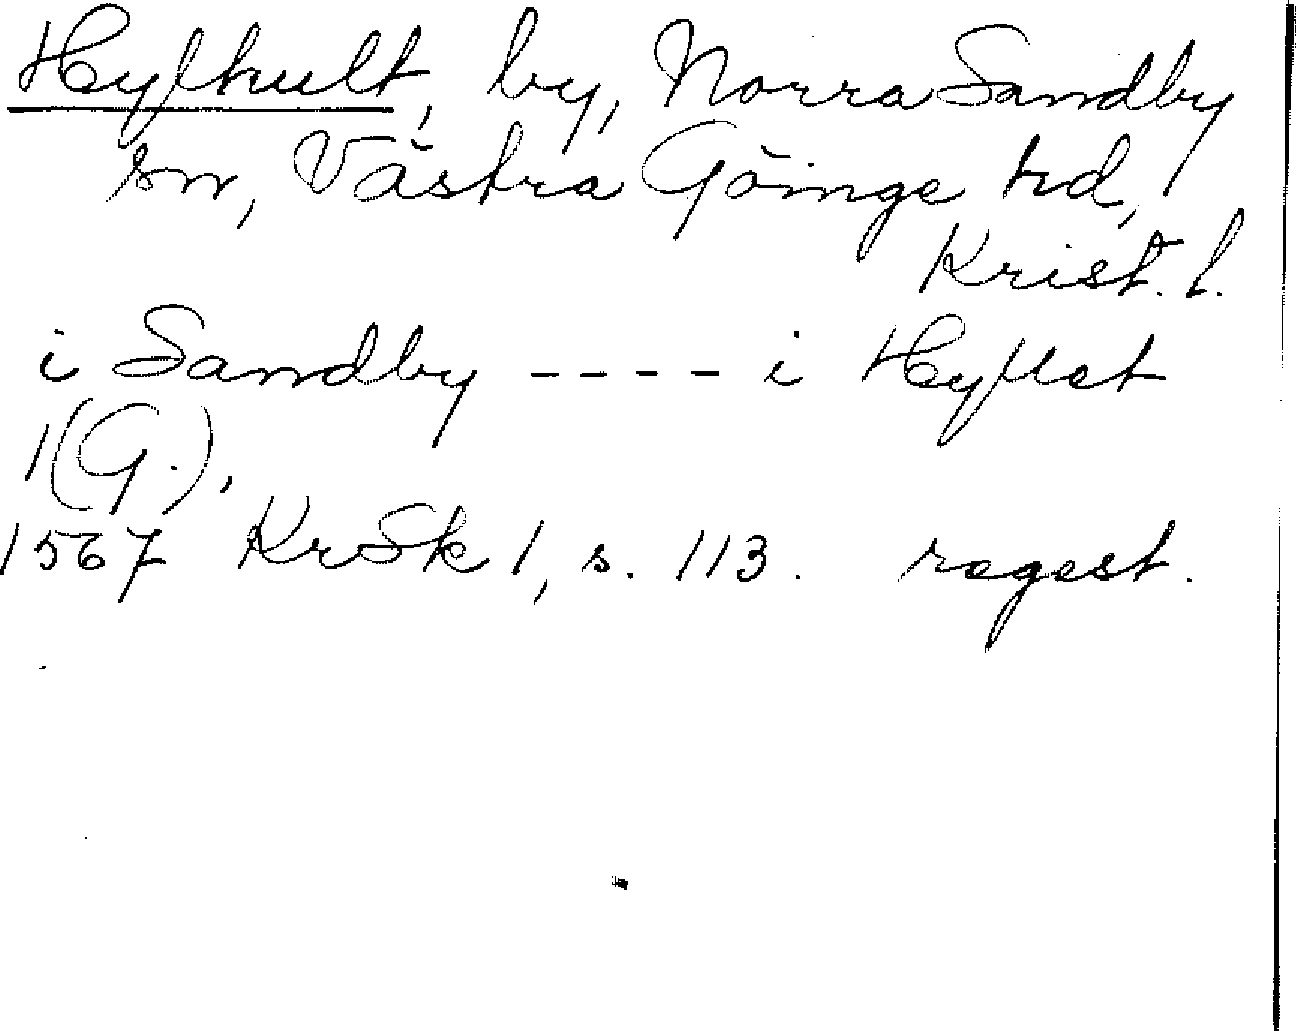 Hylhult, by, Norra Sandby
sn, Västra Göinge hd,
Krist. l.
i Sandby ---- i Hyllet
1(G.),
1567 KrSk 1, s. 113. regest.